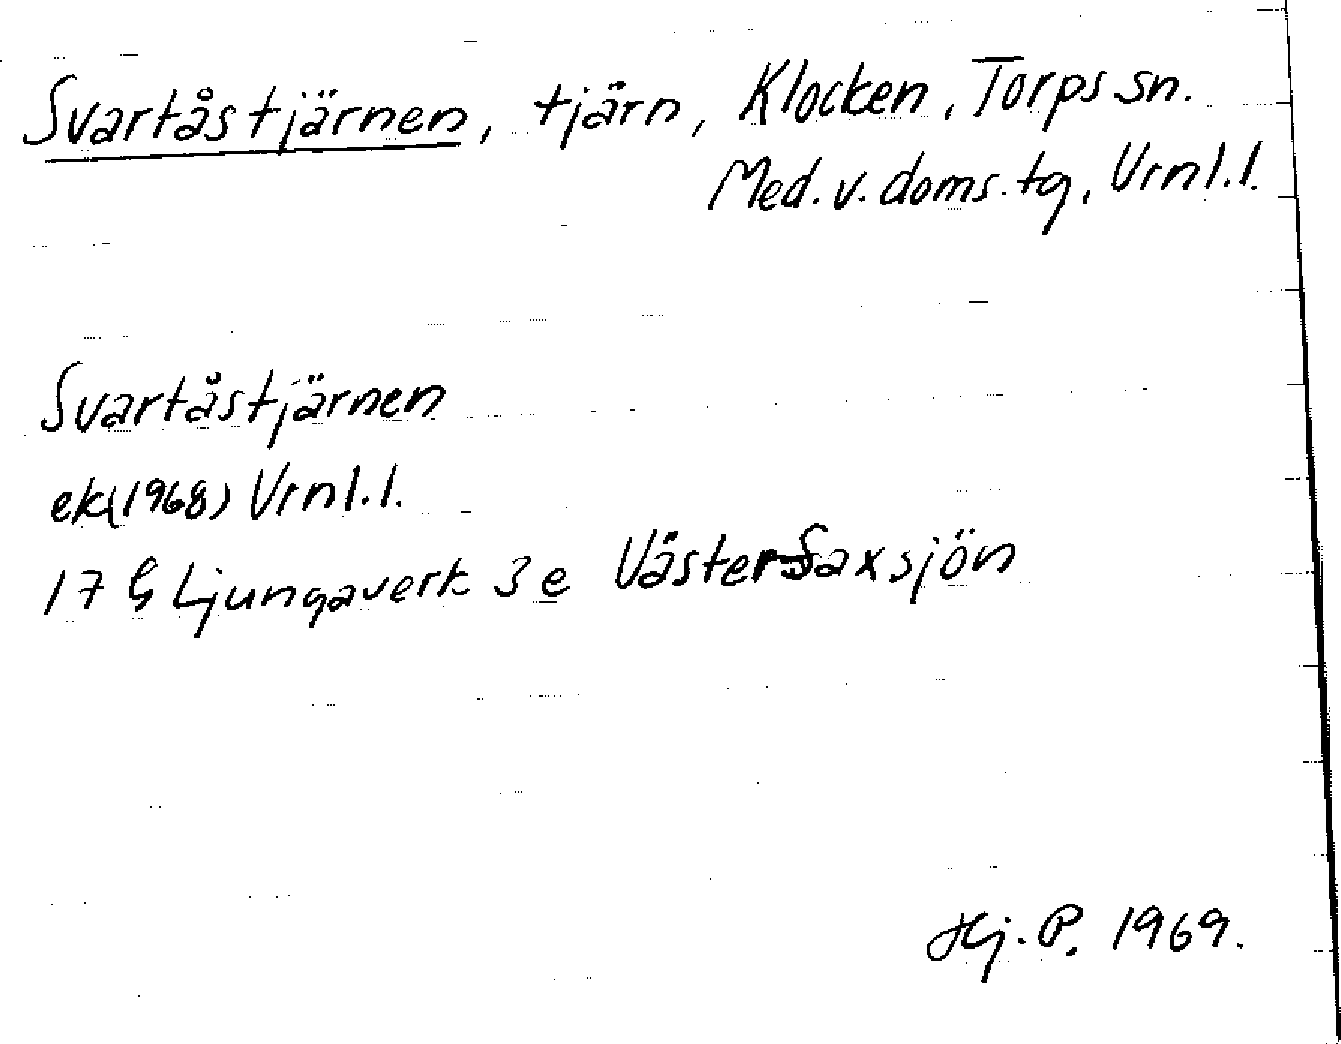 Svartåstjärnen, tjärn, Klocken, Torps sn.
Med. v. doms. tg, Vrnl. l.
Svartåstjärnen
ek(1968) Vrnl. l.
17 G Ljungaverk 3 e Väster-Saxsjön
Hj. P. 1969.